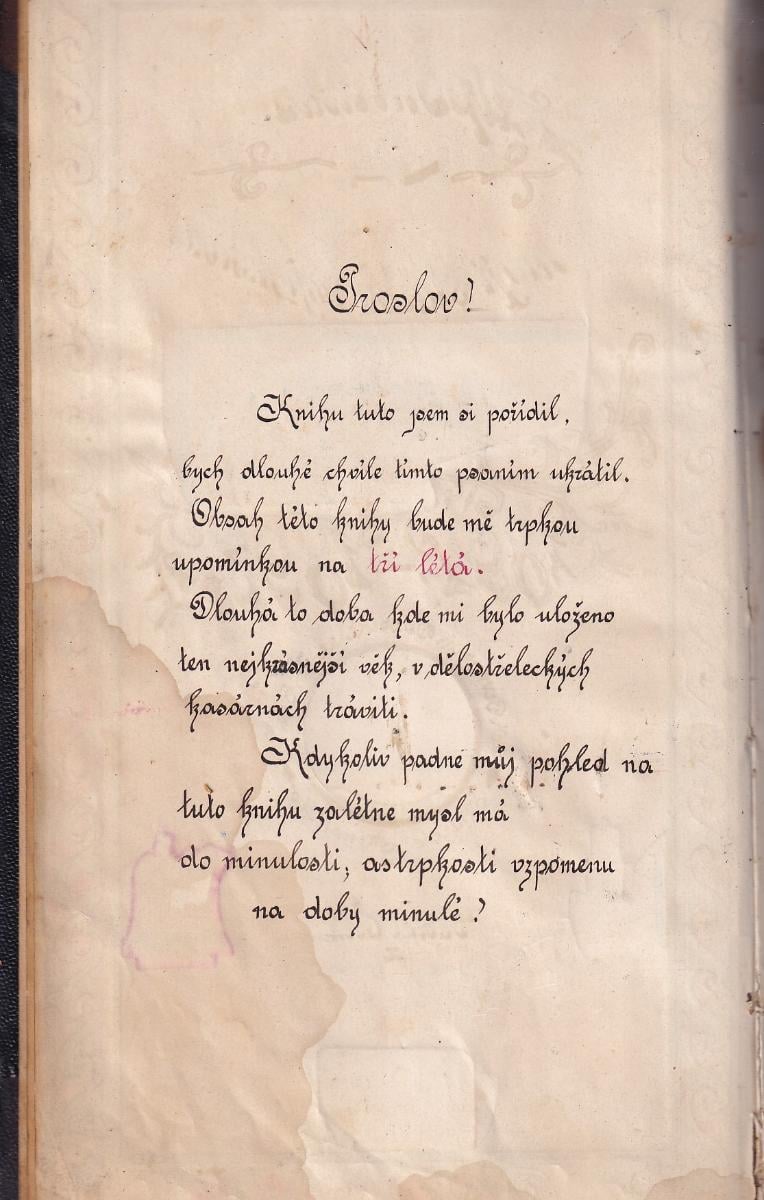 Proslov!
Knihu tuto jsem si pořídil,
bych dlouhé chvíle tímto psaním ukrátil.
Obsah této knihy bude mě trpkou
upomínkou na tří létá.
Dlouhá to doba kde mi bylo uloženo
ten nejkrásnější věk, v dělostřeleckých
kasárnách tráviti.
Kdykoliv padne můj pohled na
tuto knihu zalétne mysl má
do minulosti; a s trpkosti vzpomenu
na doby minulé?